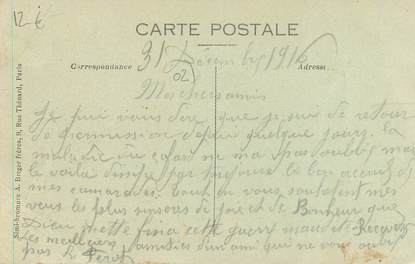 12 €
CARTE POSTALE
Correspondance
Adresse
31 Décembre 1916
02
Mes chers amis
Je puis vous dire que je suis de retour
de permission depuis quelque jours. la
maladie du cafar ne ma pas oublié mais
le voila disipé par le bon accueil de
mes camarades tout en vous souhaitent mes
veus les plus sinsores de joie et de Bonheur que
Dieu mette fin a cette guerre maudite Recevez
les meilleurs amitiés d'un ami qui ne vous oubli
pas
Simi-Bromure A. Breger frères, 9, Rue Thénard, Paris